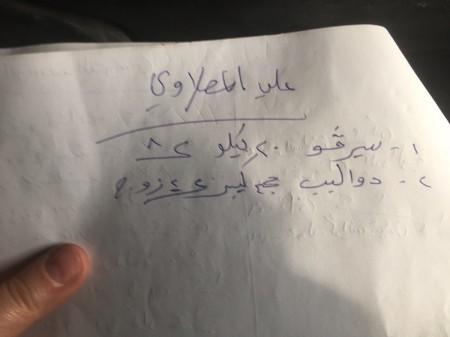 علي المصلاوي
١- سيرفو ٢٠ كيلو ٨
٢- دواليب حجم ليبر ٤ زوج